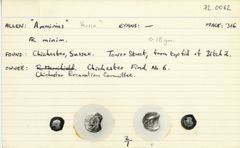 72.0062
ALLEN: "Amminius" EVANS: — MACK: 316
Æ minim. 0.18 gm.
FOUND: Chichester, Sussex. Tower Street, from topfill of Ditch 2.
OWNER: Chichester Find No 6.
Chichester Excavation Committee.
2/1